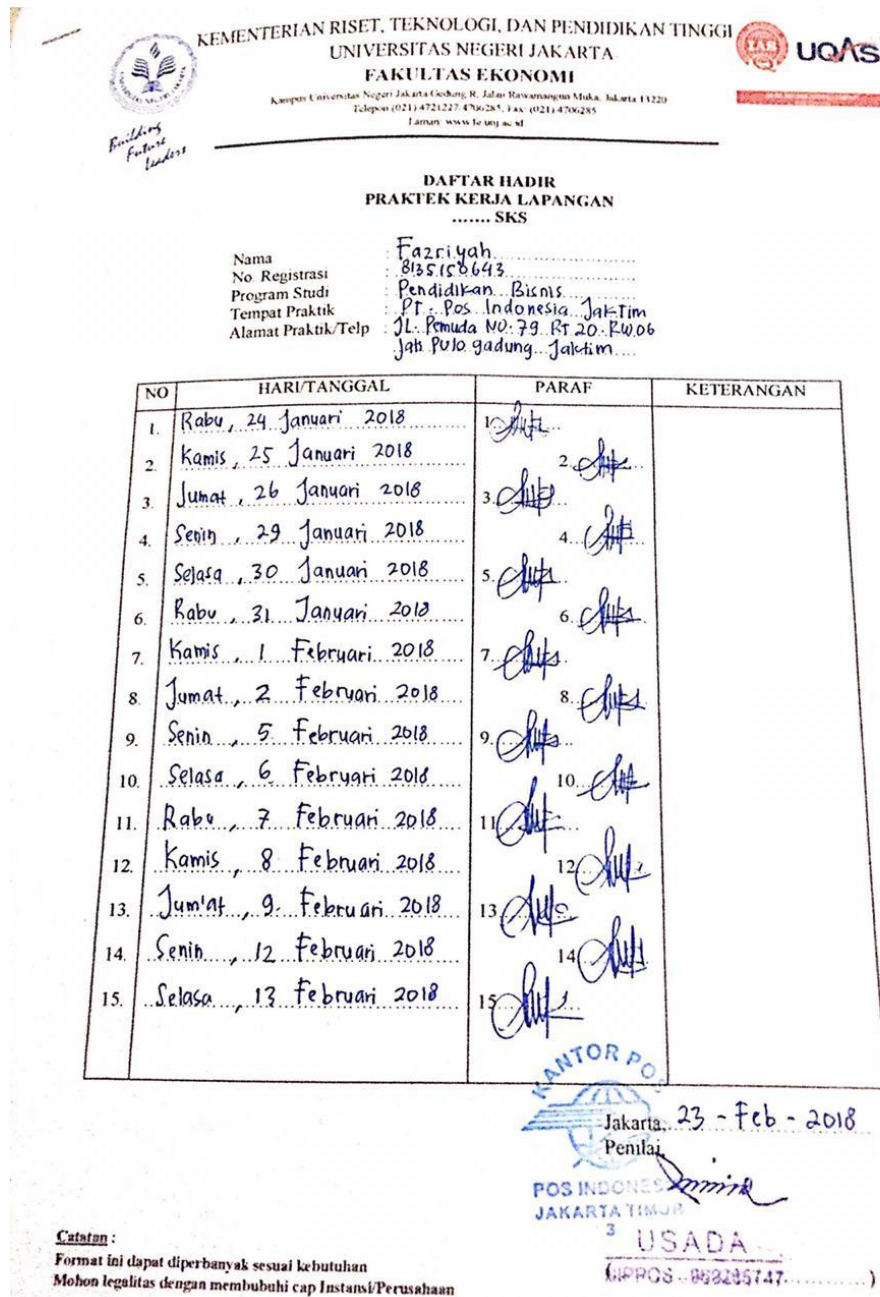 KEMENTERIAN RISET, TEKNOLOGI, DAN PENDIDIKAN TINGGI
UNIVERSITAS NEGERI JAKARTA
FAKULTAS EKONOMI
Kampus Universitas Negeri Jakarta Gedung R, Jalan Rawamangun Muka, Jakarta 13220
Telepon (021) 4721227/4706285, Fax: (021) 4706285
Laman: www.fe.unj.ac.id
Building
Future
Leaders
UQAS
DAFTAR HADIR
PRAKTEK KERJA LAPANGAN
....... SKS
Nama : Fazriyah
No. Registrasi : 8135158643
Program Studi : Pendidikan Bisnis
Tempat Praktik : PT. Pos Indonesia JakTim
Alamat Praktik/Telp : JL. Pemuda NO. 79 RT 20. RW.06
Jati Pulo gadung Jaktim
NO HARI/TANGGAL PARAF KETERANGAN
1. Rabu, 24 Januari 2018 1.
2. Kamis, 25 Januari 2018 2.
3. Jumat, 26 Januari 2018 3.
4. Senin, 29 Januari 2018 4.
5. Selasa, 30 Januari 2018 5.
6. Rabu, 31 Januari 2018 6.
7. Kamis, 1 Februari 2018 7.
8. Jumat, 2 Februari 2018 8.
9. Senin, 5 Februari 2018 9.
10. Selasa, 6 Februari 2018 10.
11. Rabu, 7 Februari 2018 11
12. Kamis, 8 Februari 2018 12
13. Jum'at, 9. Februari 2018 13
14. Senin, 12 Februari 2018 14
15. Selasa, 13 Februari 2018 15
KANTOR POS
Jakarta, 23 - Feb - 2018
Penilai,
POS INDONESIA
JAKARTA TIMUR
3
USADA
(NIPPOS )
Catatan :
Format ini dapat diperbanyak sesuai kebutuhan
Mohon legalitas dengan membubuhi cap Instansi/Perusahaan